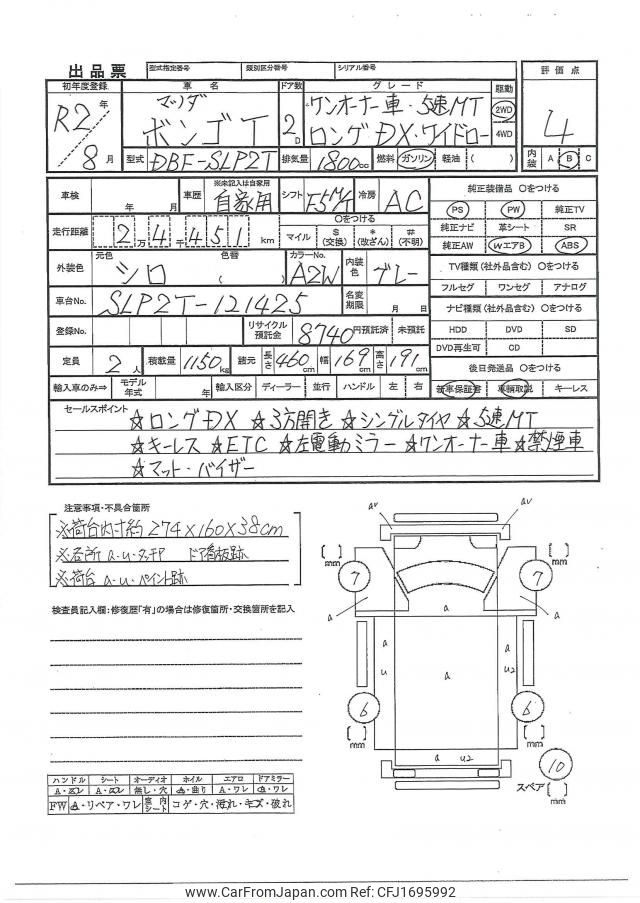 出品票 型式指定番号 類別区分番号 シリアル番号
初年度登録 車名 ドア数 グレード 駆動 評価点
R2年 マツダ ワンオーナー車・5速MT 2WD
8月 ボンゴT 2D ロングDX・ワイドロー 4WD 4
型式 DBF-SLP2T 排気量 1800cc 燃料 ガソリン 軽油 ( ) 内装 A B C
車検 年 月 車歴 ※未記入は自家用 自家用 シフト F5M/T 冷房 AC
純正装備品 ○をつける
走行距離 2万4千451km ○をつける マイル $(交換) *(改ざん) #(不明)
PS PW 純正TV
純正ナビ 革シート SR
純正AW WエアB ABS
外装色 元色 シロ 色替 ( ) カラーNo. A2W 内装色 グレー
TV種類(社外品含む) ○をつける
フルセグ ワンセグ アナログ
車台No. SLP2T-121425 名変期限 月 日
ナビ種類(社外品含む) ○をつける
登録No. リサイクル預託金 8740円預託済 未預託
HDD DVD SD
DVD再生可 CD
定員 2人 積載量 1150kg 諸元 長さ460cm 幅169cm 高さ191cm
後日発送品 ○をつける
輸入車のみ⇒ モデル年式 年 輸入区分 ディーラー 並行 ハンドル 左 右
新車保証書 車輌取説 キーレス
セールスポイント
☆ロングDX ☆3方開き ☆シングルタイヤ ☆5速MT
☆キーレス ☆ETC ☆左電動ミラー ☆ワンオーナー車 ☆禁煙車
☆マット・バイザー
注意事項・不具合箇所
※荷台内寸約274×160×38cm
※各所a・u・タッチP ドア看板跡
※荷台a・u・ペイント跡
検査員記入欄:修復歴「有」の場合は修復箇所・交換箇所を記入
av av
[ ] mm 7 7 [ ] mm
a a a a
a a
u a u2
6 6
[ ] mm [ ] mm
a u2
10
スペア [ ] mm
ハンドル シート オーディオ ホイル エアロ ドアミラー
A・スレ A・スレ 無し・穴 A・曲り A・ワレ A・ワレ
FW A・リペア・ワレ 室内シート コゲ・穴・汚れ・キズ・破れ
www.CarFromJapan.com Ref: CFJ1695992